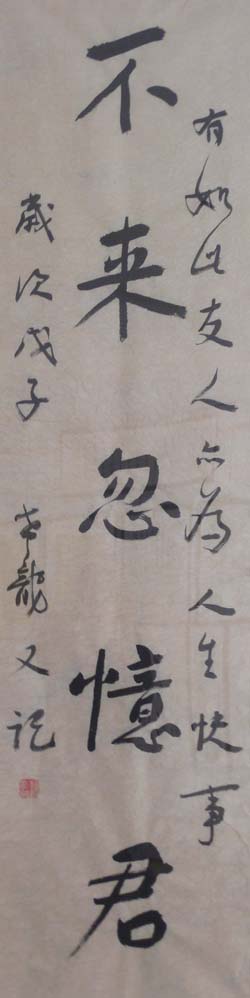 有如此友人亦為人生快事
不来忽憶君
歲次戊子 龍又記